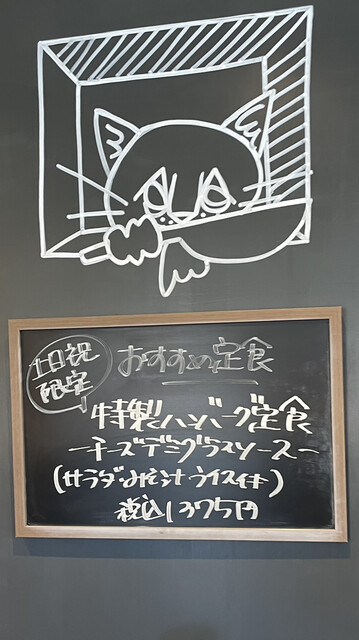 土日祝
限定
おすすめ定食
特製ハンバーグ定食
ーチーズデミグラスソースー
(サラダみそ汁ライス付)
税込1375円